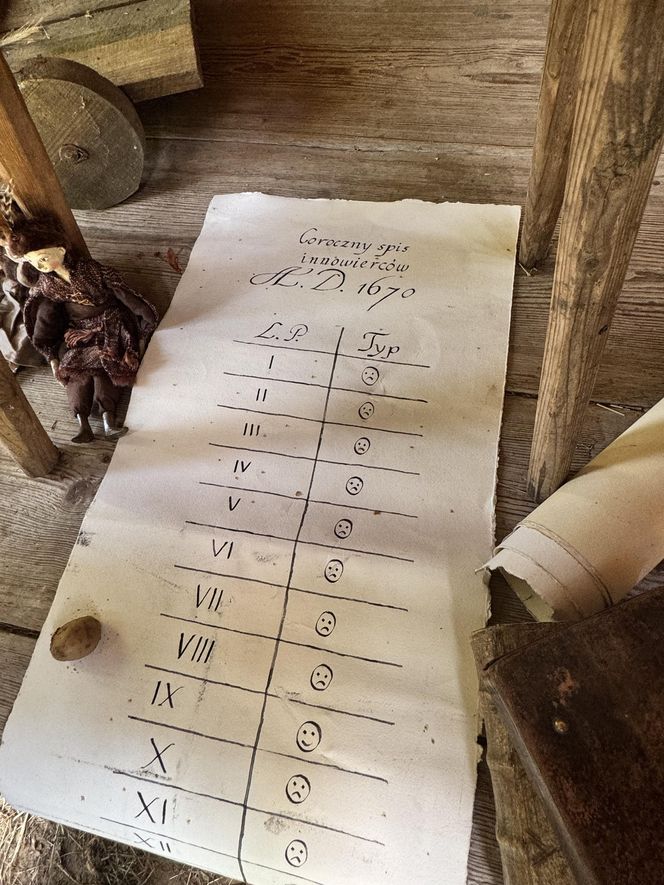 Coroczny spis
innowierców
A.D. 1670
L.P. Typ
I ☹
II ☹
III ☹
IV ☹
V ☹
VI ☹
VII ☹
VIII ☹
IX ☺
X ☹
XI ☹
XII